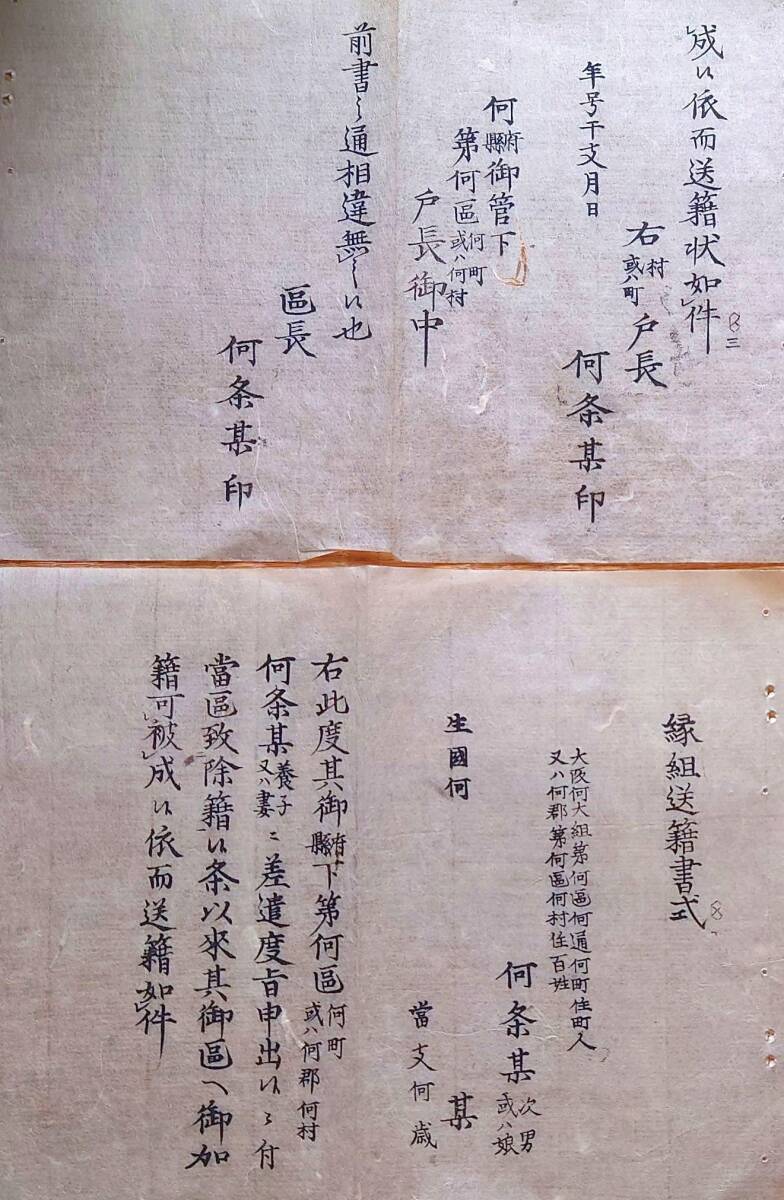 成候依而送籍状如件
八三
右村或ハ町戸長
何条某印
年号干支月日
何府縣御管下
第何區何町或ハ何村
戸長御中
前書之通相違無之候也
區長
何条某印
縁組送籍書式
八
大阪何大組第何區何通何町住町人
又ハ何郡第何區何村住百姓
何条某次男或ハ娘
某
生國何
當支何歳
右此度其御府縣下第何區何町或ハ何郡何村
何条某養子又ハ妻ニ差遣度旨申出候ニ付
當區致除籍候条以来其御區へ御加
籍可被成候依而送籍如件